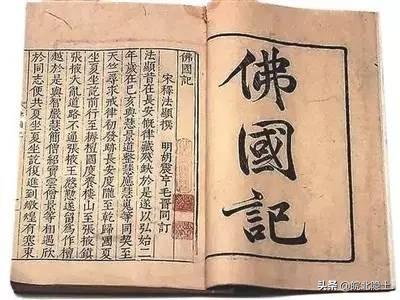 佛國記
佛國記
宋釋法顯撰
明胡震亨毛晉同訂
法顯昔在長安慨律藏殘缺於是遂以弘始二
年歲在己亥與慧景道整慧應慧嵬等同契至
天竺尋求戒律初發跡長安度隴至乾歸國夏
坐夏坐訖前行至耨檀國度養樓山至張掖鎮
張掖大亂道路不通張掖王慇懃遂留為作檀
越於是與智嚴慧簡僧紹寶雲僧景等相遇欣
於同志便共夏坐夏坐訖復進到燉煌有塞東
头条 @皖北隐士